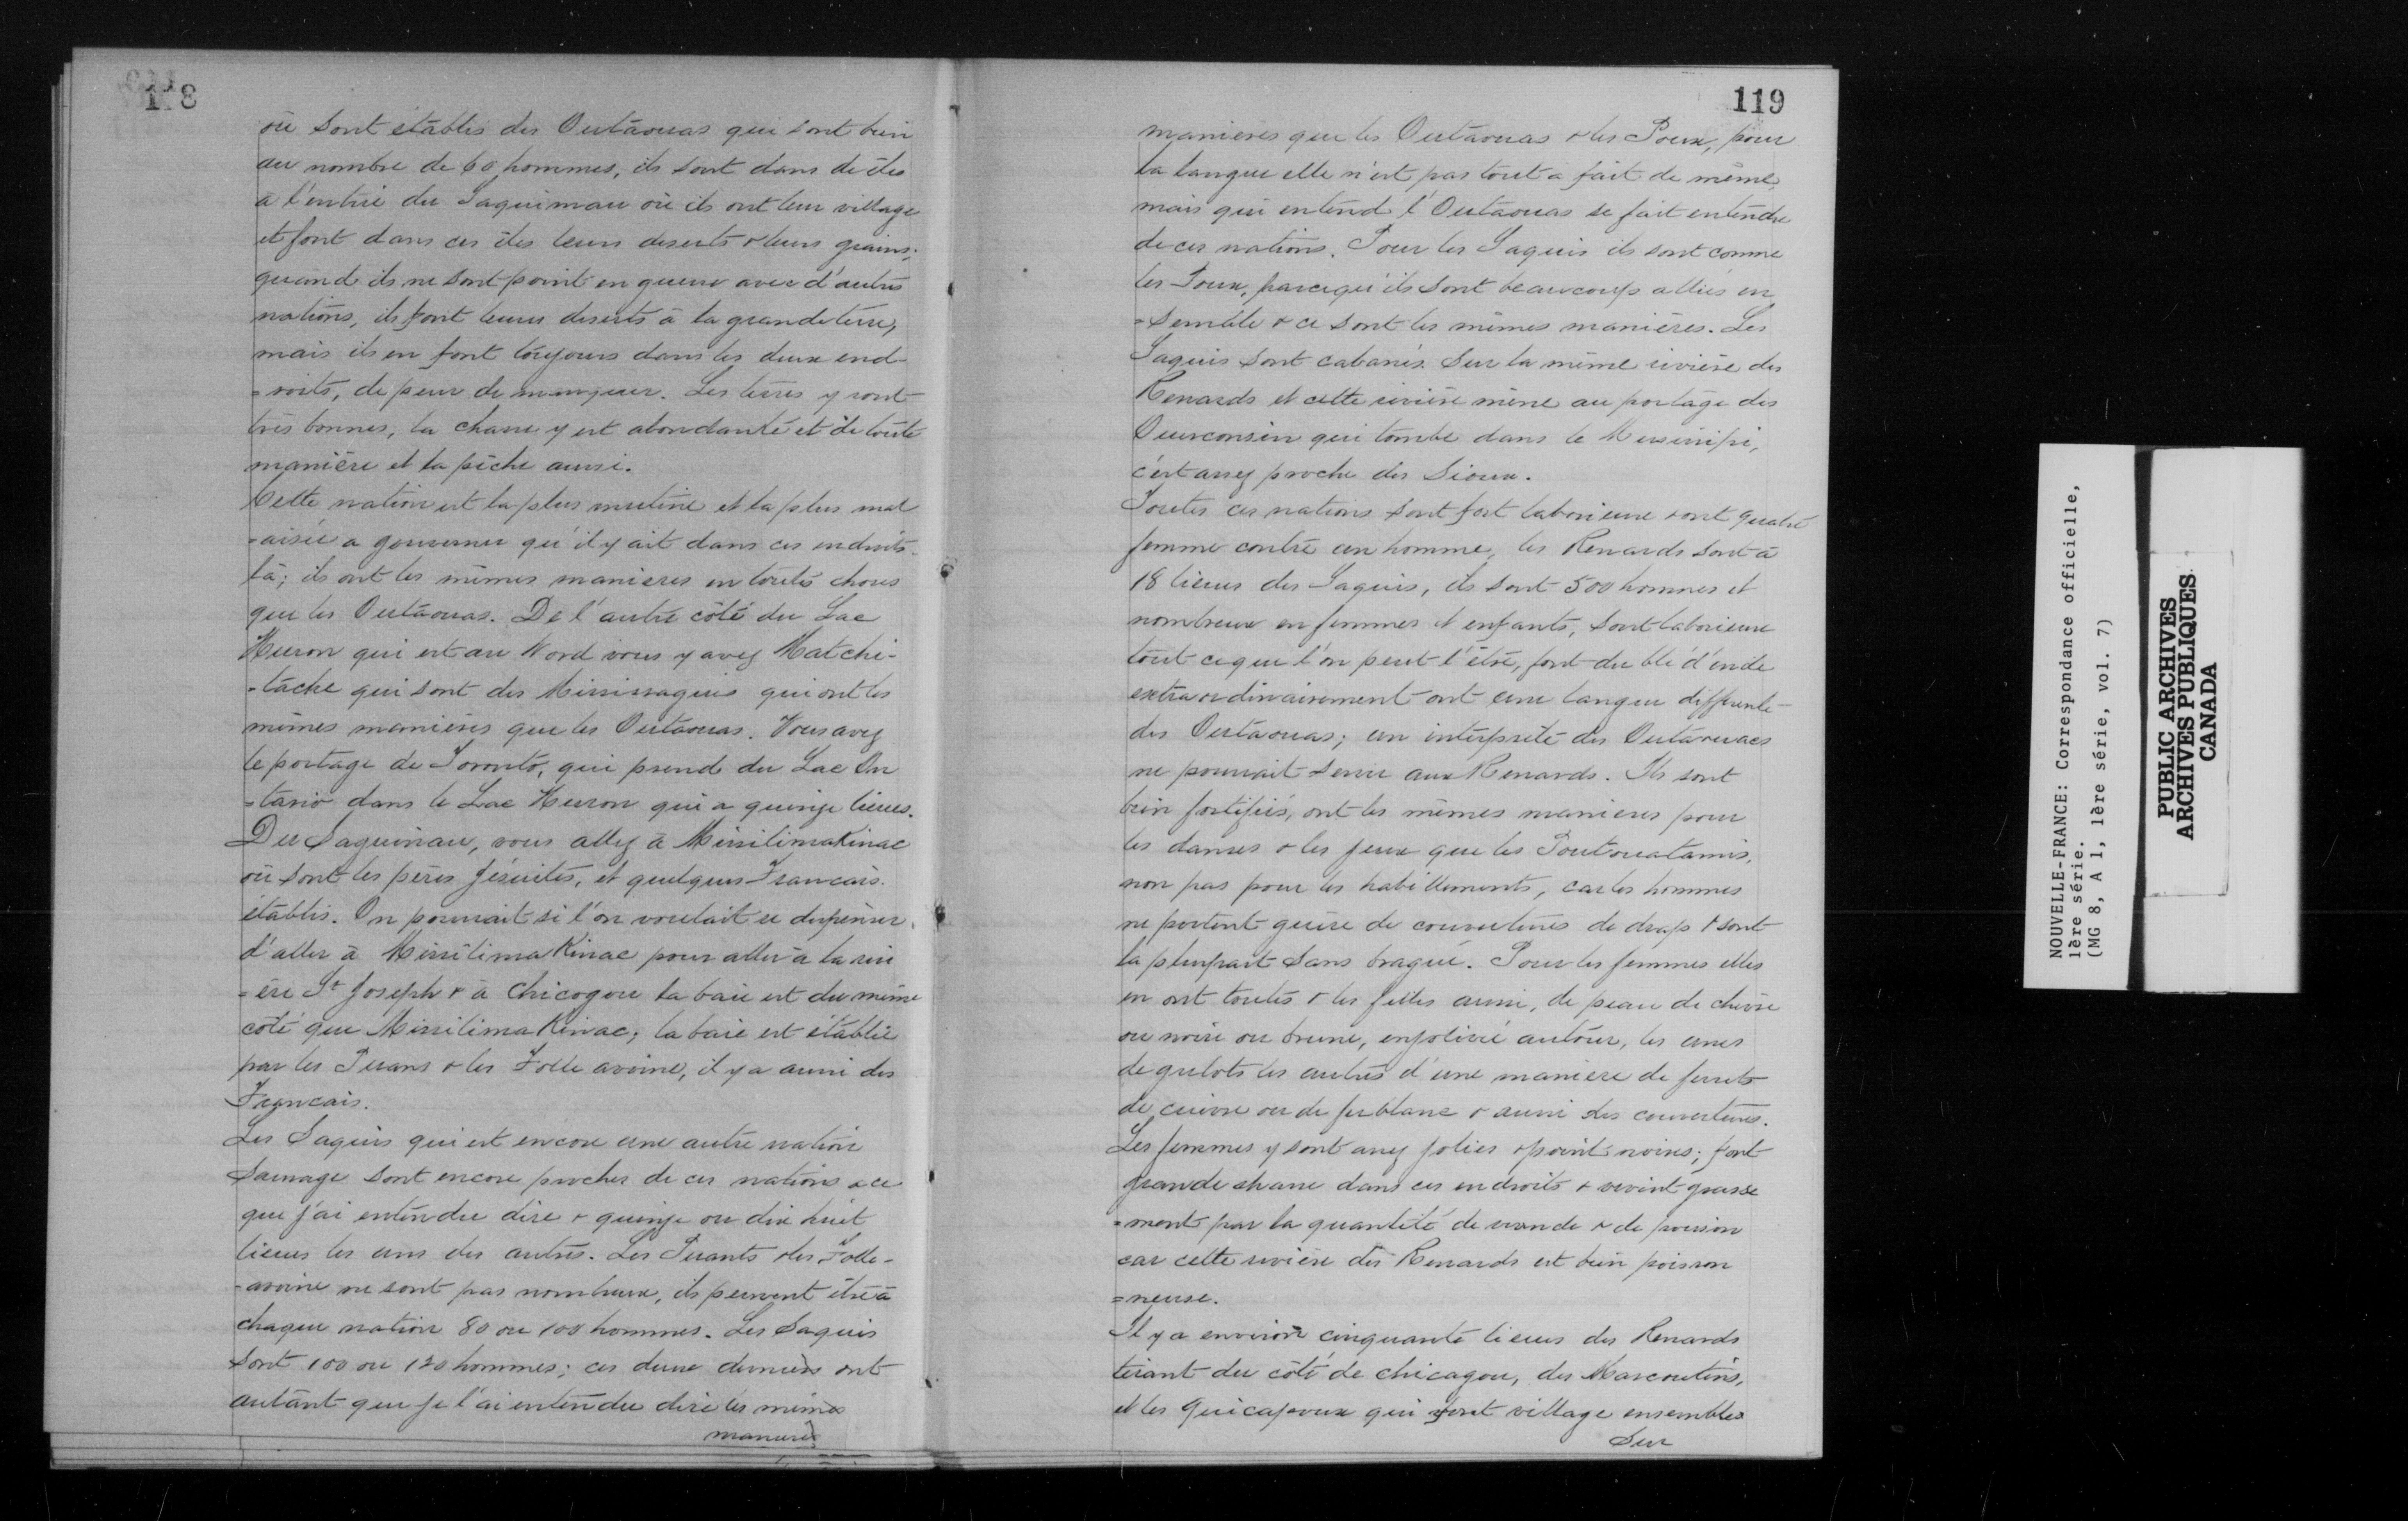 118
où sont établis des Outaouas qui sont bien
au nombre de 60 hommes, ils sont dans de îles
à l'entrée du Saquimau où ils ont leur village
et font dans ces îles leurs deserts & leurs grains;
quand ils ne sont point en guerre avec d'autres
nations, ils font leurs deserts à la grande terre,
mais ils en font toujours dans les deux end-
=roits, de peur de manquer. Les terres y sont
très bonnes, la chasse y est abondante et de toute
manière et la pêche aussi.
Cette nation est la plus mutine et la plus mal
-aisée a gouverner qu'il y ait dans ces endroits-
là; ils ont les mêmes manieres en toutes choses
que les Outaouas. De l'autre côté du Lac
Huron qui est au Nord vous y avez Matchi-
-tache qui sont des Missisaguis qui ont les
mêmes manières que les Outaouas. Vous avez
le portage de Toronto, qui prend du Lac On
=tario dans le Lac Huron qui a quinze lieues.
Du Saguinau, vous allez à Missilimakinac
où sont les pères Jésuites, et quelques Francais
établis. On pourrait si l'on voulait se dispenser
d'aller à Missilimakinac pour aller à la rivi
=ère St Joseph & à Chicogou la baie est du même
côté que Missilimakinac; la baie est établie
par les Puans & les Folle avoine, il y a aussi des
Francais.
Les Saquis qui est encore une autre nation
Sauvage sont encore proches de ces nations a ce
que j'ai entendu dire & quinze ou dix huit
lieues les uns des autres. Les Puants & les Folle-
-avoine ne sont pas nombreux, ils peuvent être à
chaque nation 80 ou 100 hommes. Les Saquis
sont 100 ou 120 hommes; ces deux derniers ont
autant que je l'ai entendu dire les mêmes
manières
119
manières que les Outaouas & les Poux, pour
la langue elle n'est pas tout a fait de même,
mais qui entend l'Outaouas se fait entendre
de ces nations. Pour les Saquis ils sont comme
les Poux, parcequ'ils sont beaucoup alliés en
=semble & ce sont les mêmes manières. Les
Saquis sont cabanés sur la même rivière des
Renards et cette rivière mène au portage des
Ouisconsin qui tombe dans le Mississipi,
c'est assez proche des Sioux.
Toutes ces nations sont fort laborieux & ont quatre
femme contre un homme, les Renards sont à
18 lieues des Saquis, ils sont 500 hommes et
nombreux en femmes et enfants, sont laborieux
tout ce que l'on peut l'être, font du blé d'inde
extraordinairement ont une langue differente
des Outaouas; un interprête des Outaouacs
ne pourrait servir aux Renards. Ils sont
bien fortifiés, ont les mêmes manieres pour
les danses & les jeux que les Poutouatamis,
non pas pour les habillements, car les hommes
ne portent guère de couvertures de drap & sont
la plupart sans brague. Pour les femmes elles
en ont toutes & les filles aussi, de peau de chèvre
ou noire ou brune, enjolivée autour, les unes
de grelots les autres d'une manière de ferrets
de cuivre ou de fer blanc & aussi des couvertures.
Les femmes y sont assez jolies & point noires; font
grande chasse dans ces endroits & vivent grasse
=ment par la quantité de viande & de poisson
car cette rivière des Renards est bien poisson
=neuse.
Il y a environ cinquante lieues des Renards
tirant du côté de chicagou, des Mascoutins,
et les Quicapoux qui font village ensembles
Sur
NOUVELLE-FRANCE: Correspondance officielle,
1ère série.
(MG 8, A 1, 1ère série, vol. 7)
PUBLIC ARCHIVES
ARCHIVES PUBLIQUES
CANADA